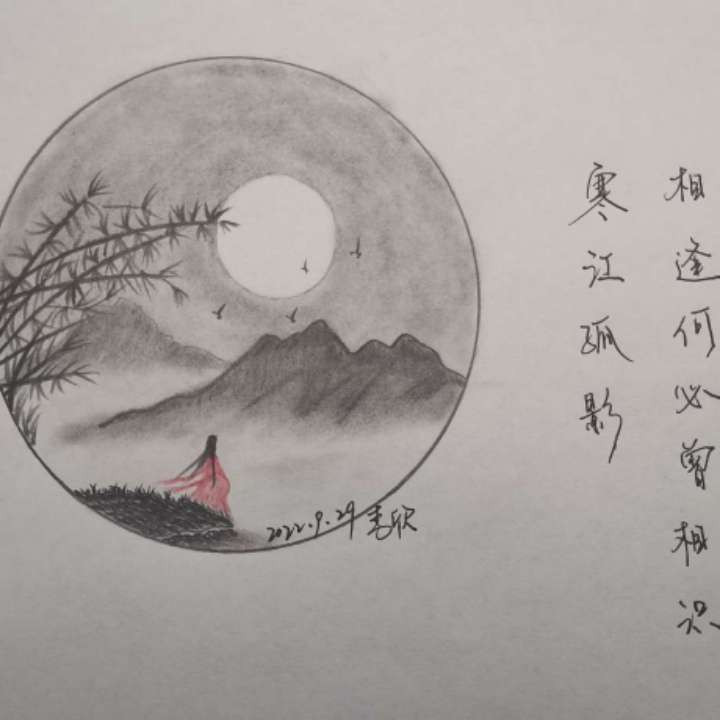 相逢何必曾相识
寒江孤影
2022.9.29